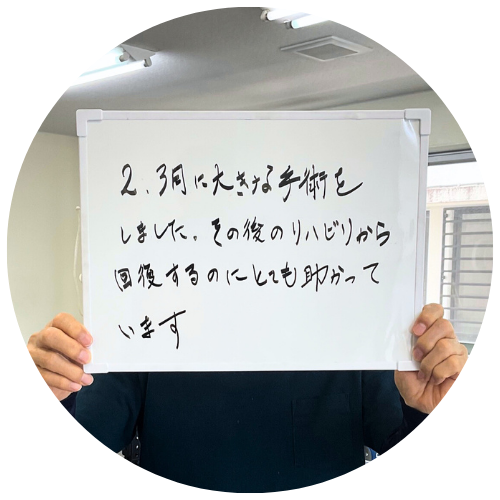 2、3月に大きな手術を
しました。その後のリハビリから
回復するのにとても助かって
います